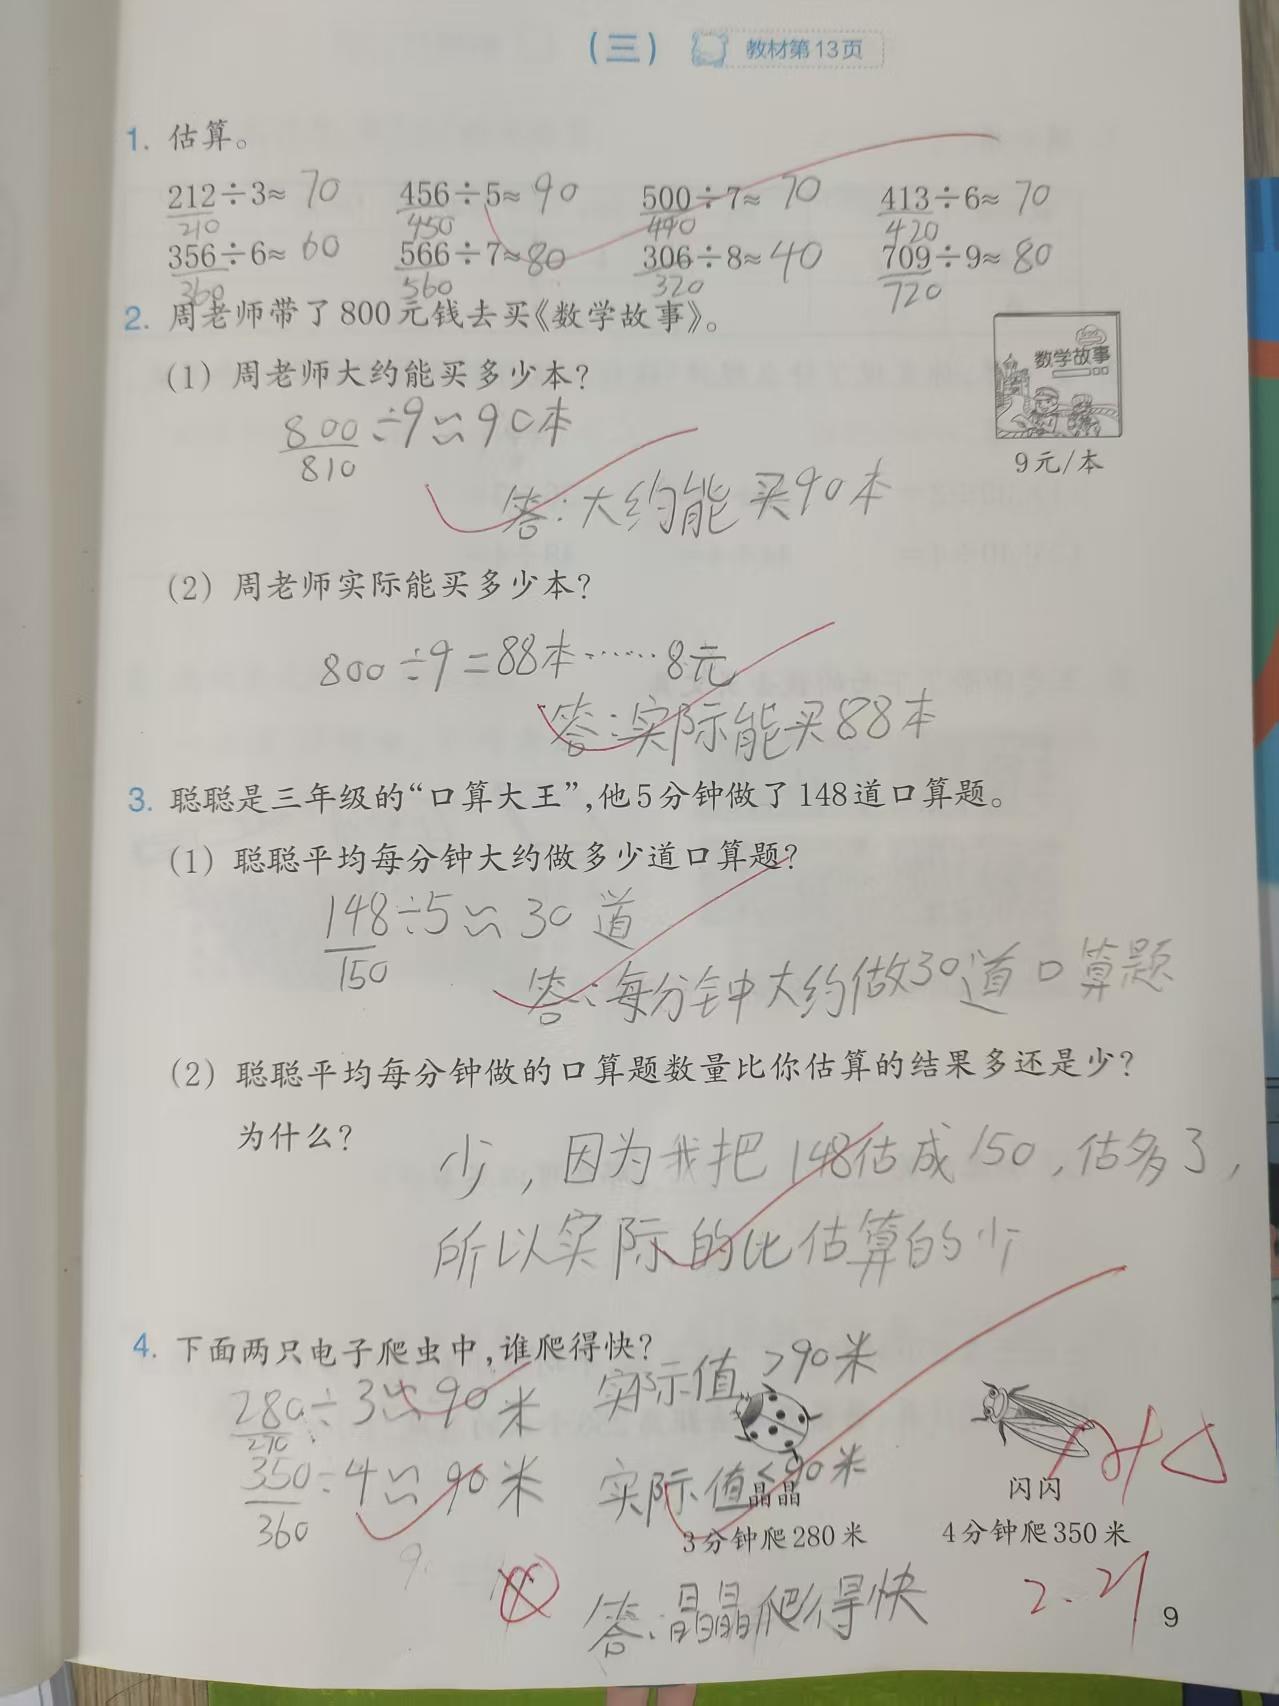 （三） 教材第13页
1. 估算。
212÷3≈ 70 456÷5≈ 90 500÷7≈ 70 413÷6≈ 70
210 450 490 420
356÷6≈ 60 566÷7≈ 80 306÷8≈ 40 709÷9≈ 80
360 560 320 720
2. 周老师带了800元钱去买《数学故事》。
（1）周老师大约能买多少本？
数学故事
9元/本
800÷9≈90本
810
答：大约能买90本
（2）周老师实际能买多少本？
800÷9=88本……8元
答：实际能买88本
3. 聪聪是三年级的“口算大王”，他5分钟做了148道口算题。
（1）聪聪平均每分钟大约做多少道口算题？
148÷5≈30道
150
答：每分钟大约做30道口算题
（2）聪聪平均每分钟做的口算题数量比你估算的结果多还是少？
为什么？
少，因为我把148估成150，估多了，
所以实际的比估算的少
4. 下面两只电子爬虫中，谁爬得快？
280÷3≈90米 实际值>90米
270
350÷4≈90米 实际值<90米
360
晶晶 闪闪
3分钟爬280米 4分钟爬350米
答：晶晶爬得快
2.21
9